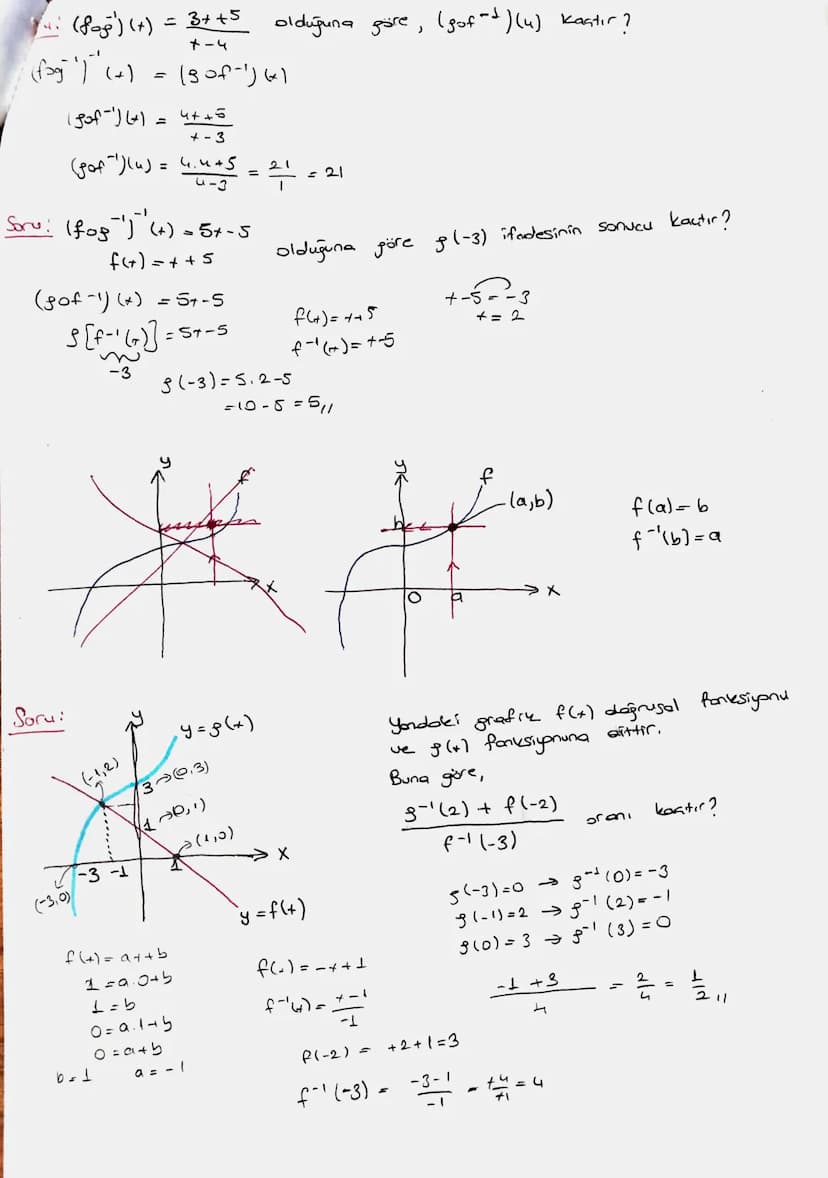 (fog⁻¹)(x) = 3x+5 / x-4 olduğuna göre, (gof⁻¹)(4) kaçtır?
(fog⁻¹)⁻¹(x) = (gof⁻¹)(x)
(gof⁻¹)(x) = 4x+5 / x-3
(gof⁻¹)(4) = 4.4+5 / 4-3 = 21/1 = 21
Soru: (fog⁻¹)⁻¹(x) = 5x-5
f(x) = x+5 olduğuna göre g(-3) ifadesinin sonucu kaçtır?
(gof⁻¹)(x) = 5x-5
g[f⁻¹(x)] = 5x-5
-3
f(x) = x+5
f⁻¹(x) = x-5
x-5 = -3
x = 2
g(-3) = 5.2-5
= 10-5 = 5//
y
f
x
y
f
(a,b)
b
0
a
x
f(a) = b
f⁻¹(b) = a
Soru:
y
y = g(x)
(-1,2)
3→(0,3)
1→(0,1)
(1,0)
x
-3 -1
1
(-3,0)
y = f(x)
Yandaki grafik f(x) doğrusal fonksiyonu
ve g(x) fonksiyonuna aittir.
Buna göre,
g⁻¹(2) + f(-2) / f⁻¹(-3) oranı kaçtır?
g(-3)=0 → g⁻¹(0)=-3
g(-1)=2 → g⁻¹(2)=-1
g(0)=3 → g⁻¹(3)=0
-1+3 / 4 = 2/4 = 1/2 //
f(x) = ax+b
1 = a.0+b
1 = b
0 = a.1+b
0 = a+b
b=1 a=-1
f(x) = -x+1
f⁻¹(x) = x-1 / -1
f(-2) = +2+1=3
f⁻¹(-3) = -3-1 / -1 = +4/+1 = 4